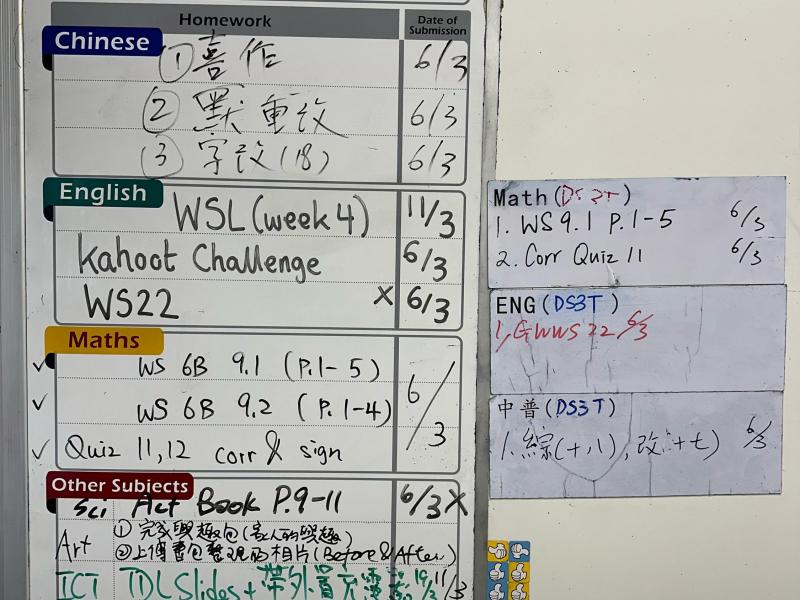 Homework
Date of Submission
Chinese
① 喜作 6/3
② 默重改 6/3
③ 字改(18) 6/3
English
WSL (week 4) 11/3
Kahoot Challenge 6/3
WS22 X 6/3
Maths
✓ WS 6B 9.1 (P.1-5)
✓ WS 6B 9.2 (P.1-4) 6/3
✓ Quiz 11,12 corr & sign
Other Subjects
Sci Act Book P.9-11 6/3 X
Art ① 完成興趣包(家人的興趣)
② 上傳書包整理的相片(Before & After)
ICT TDL Slides + 帶外置充電
Math (DS3T)
1. WS 9.1 P.1-5 6/3
2. Corr Quiz 11 6/3
ENG (DS3T)
1, GWWS 22 6/3
中普 (DS3T)
1. 綜(十八), 改(十七) 6/3